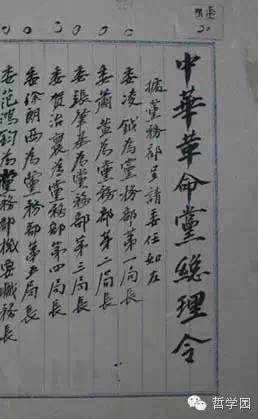 中華革命黨總理令
據黨務部呈請委任如左
委凌鉞為黨務部第一局長
委蕭萱為黨務部第二局長
委張肇基為黨務部第三局長
委賀治寰為黨務部第四局長
委徐朗西為黨務部第五局長
委范鴻鈞為黨務部機要職務長
哲学园